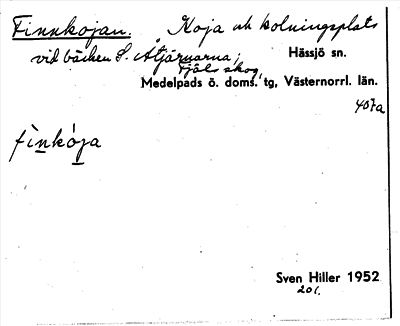 Finnkojan. Koja och kolningsplats
vid bäcken S. Åtjärnarna; Hässjö sn.
Fjäls skog,
Medelpads ö. doms. tg, Västernorrl. län.
407a
fìnkója
Sven Hiller 1952
201.